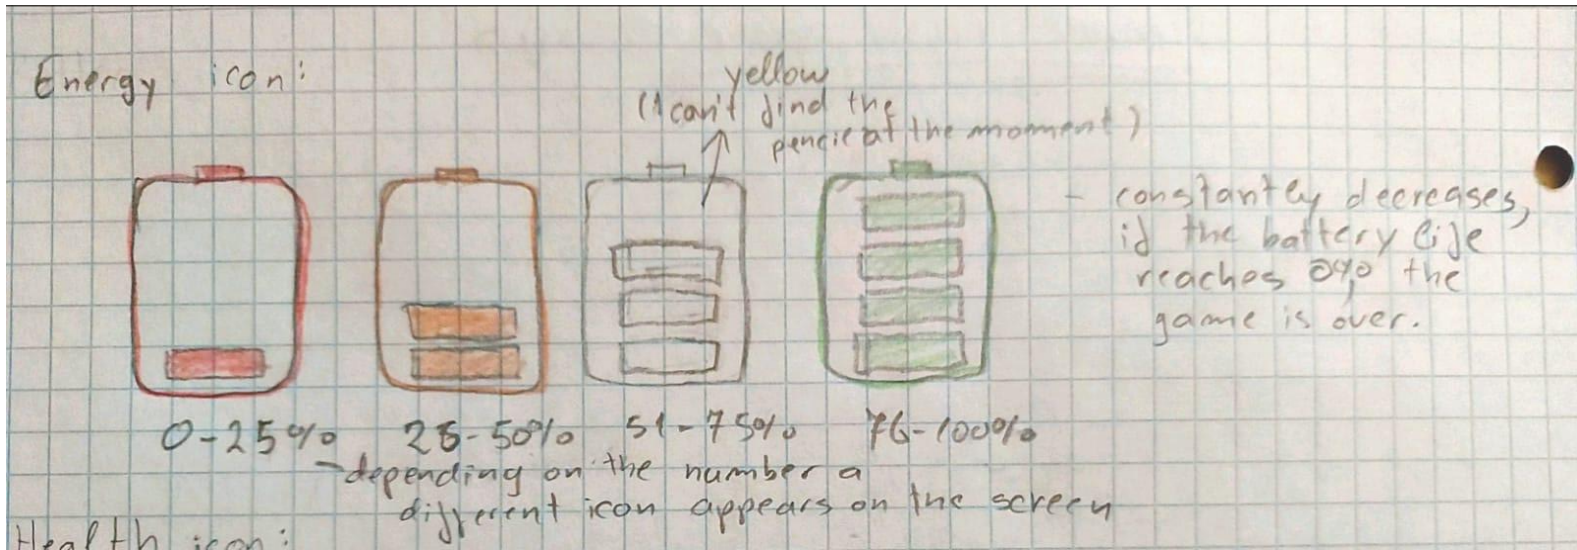 Energy icon:
yellow
(I can't find the
pencil at the moment)
- constantly decreases,
if the battery life
reaches 0% the
game is over.
0-25% 26-50% 51-75% 76-100%
- depending on the number a
different icon appears on the screen
Health icon: